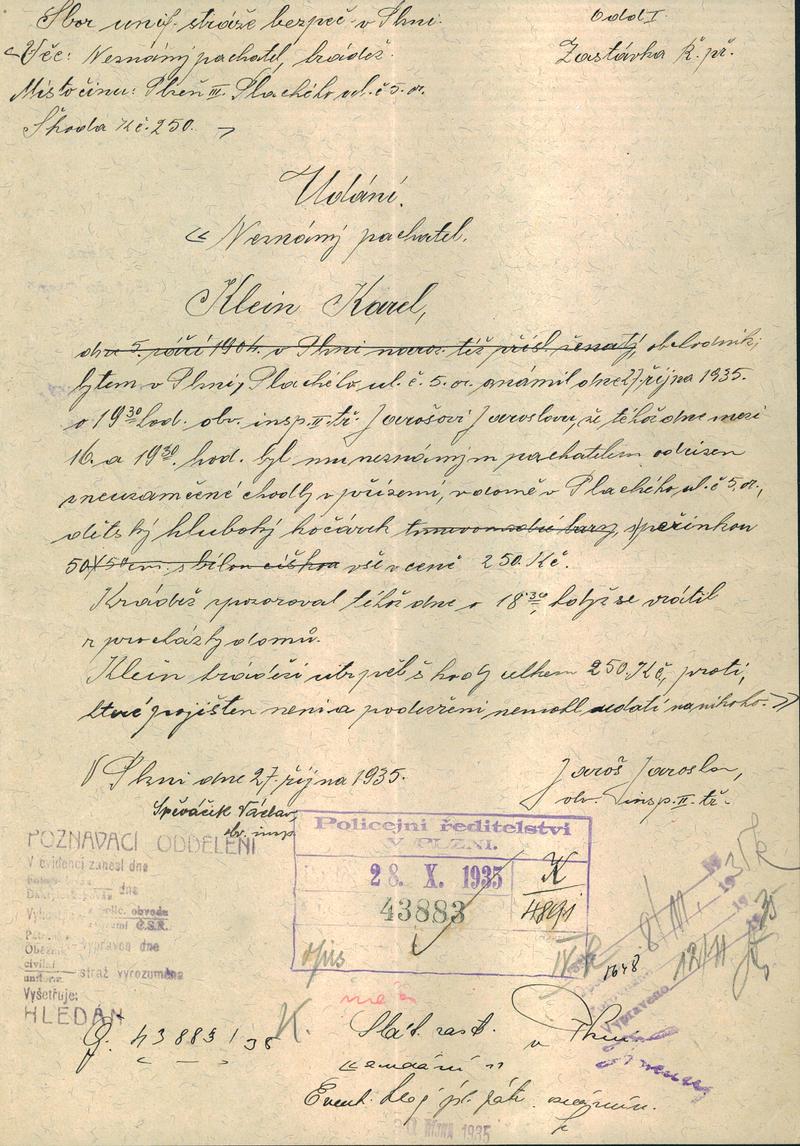 Sbor unif. stráže bezpeč. v Plzni.
Odd I.
Věc: Neznámý pachatel, krádež.
Zastávka K. př.
Místo činu: Plzeň III. Plachého ul. č 5. or.
Škoda Kč. 250.
Udání.
« Neznámý pachatel.
Klein Karel,
dne 5. září 1904. v Plzni naroz. též přísl. ženatý, obchodník,
bytem v Plzni, Plachého ul. č. 5. or. oznámil dne 27. října 1935.
o 19 30 hod. obv. insp. II. tř. Jarošovi Jaroslavu, že téhož dne mezi
16. a 19 30. hod. byl mu neznámým pachatelem odcizen
z neuzamčené chodby v přízemí, v domě v Plachého ul. č 5. or.,
dětský hluboký kočárek tmavomodré barvy, s peřinkou
50X50 cm. s bílou cíškou vše v ceně 250. Kč.
Krádež zpozoroval téhož dne o 18 30, když se vrátil
z procházky domů.
Klein krádeží utrpěl škody celkem 250. Kč, proti,
které pojištěn není a podezření nemohl udati na nikoho. »
V Plzni dne 27. října 1935.
Jaroš Jaroslav,
obv. insp. II. tř.
Spěváček Václav,
obv. insp.
POZNÁVACÍ ODDĚLENÍ
V evidenci zanesl dne
dne
polic. obvodu
Č.S.R.
vypraven dne
civilní
stráž vyrozuměna
Vyšetřuje:
HLEDÁN
Policejní ředitelství
V PLZNI.
28. X. 1935
43883
K
4891
opis
1648
8/11.
12/11
35
Vypraveno
43883/35
K.
Stát. zast. v Plzni
« udání »
Event.
1935